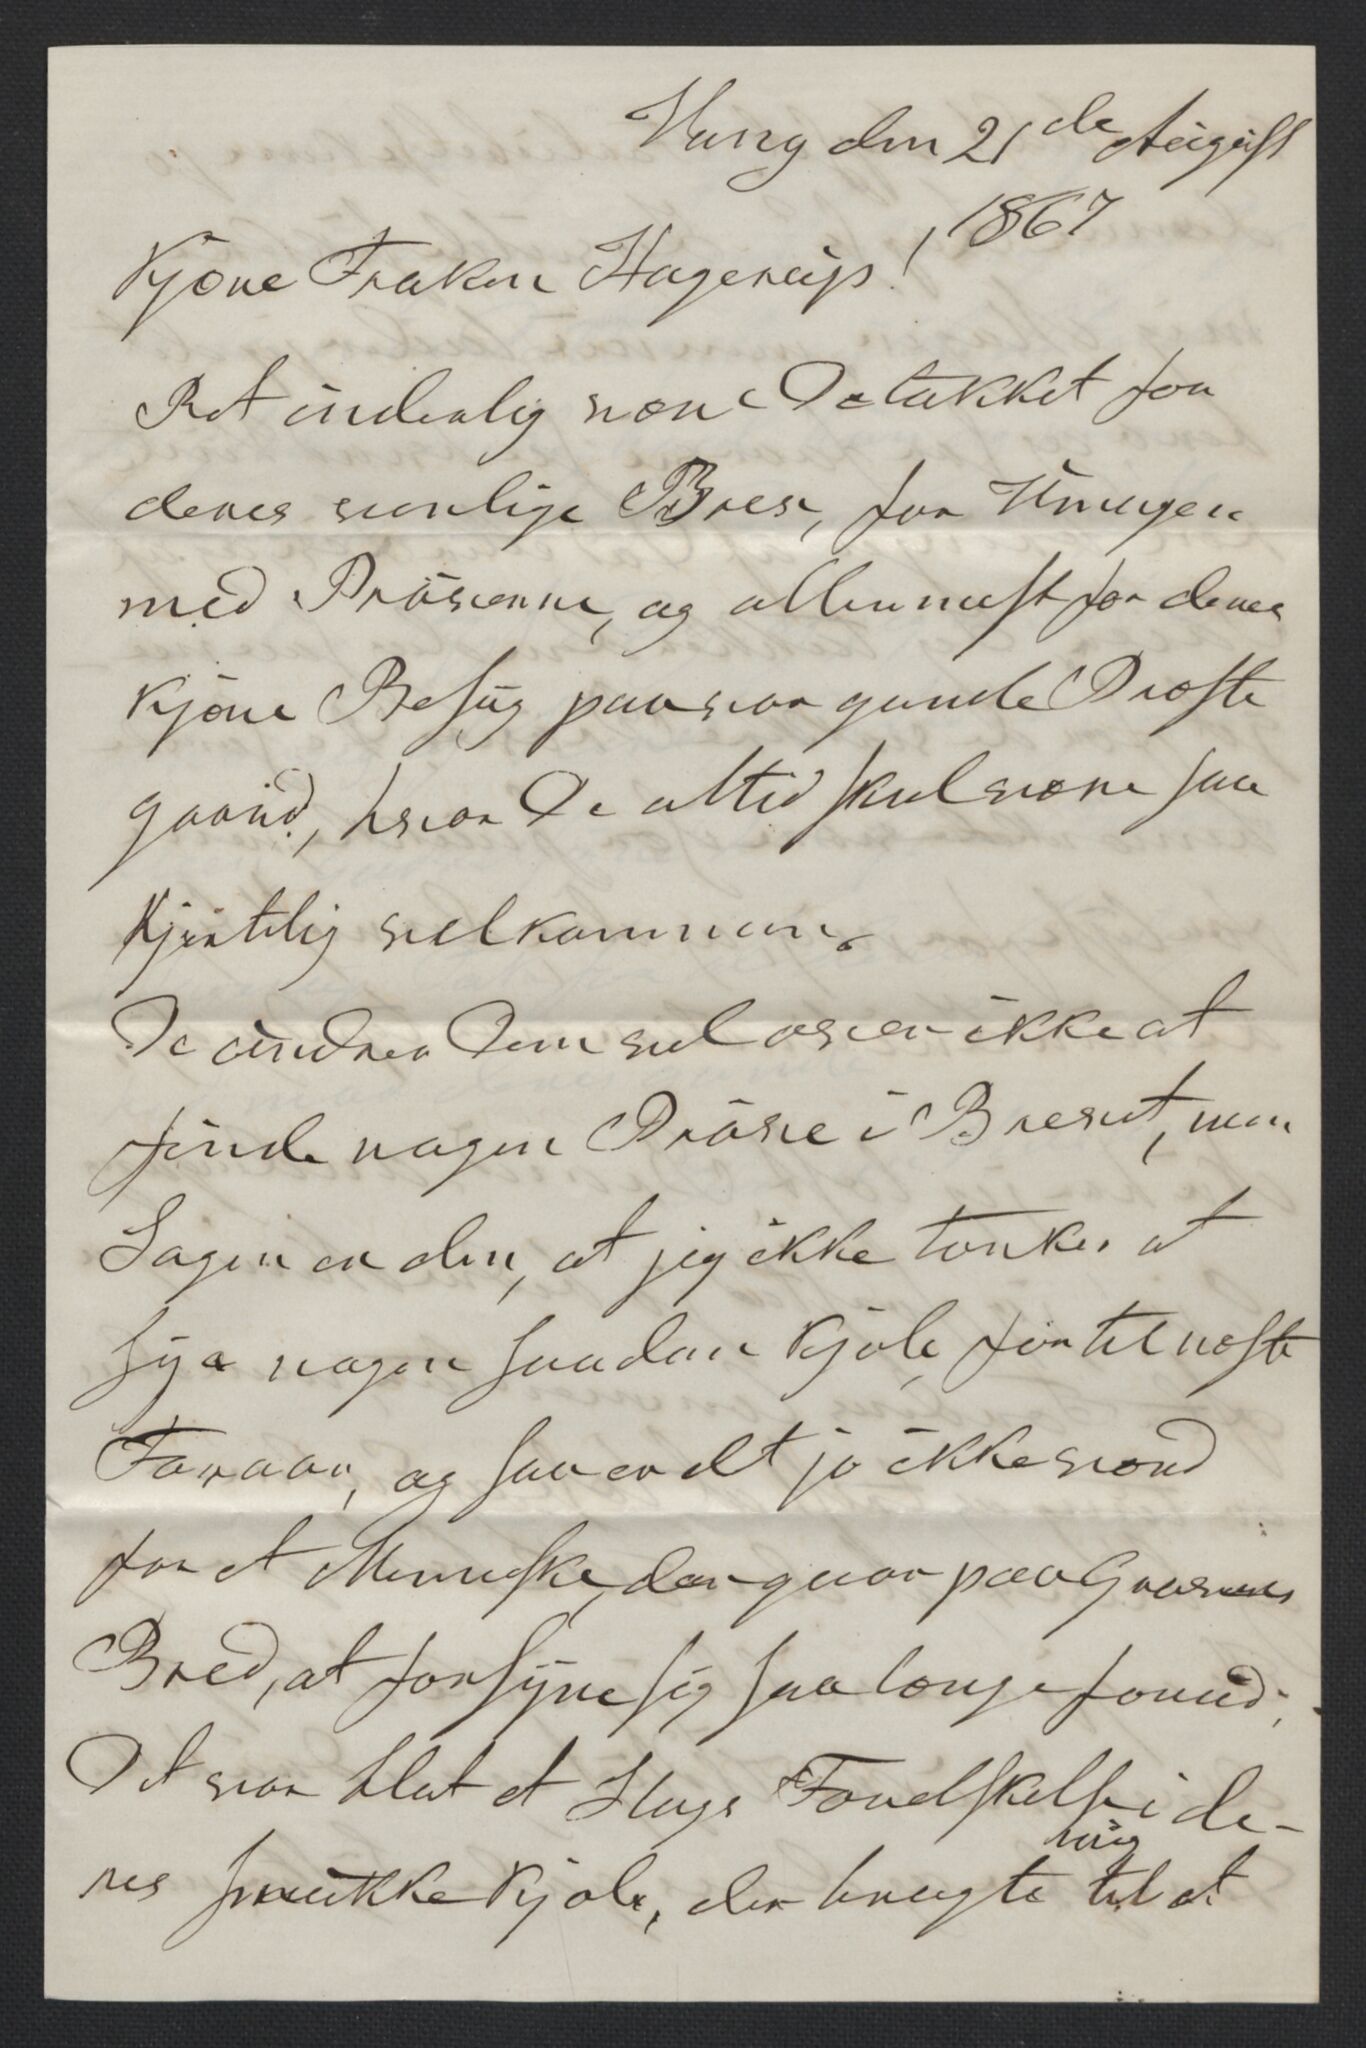 Vang den 21de August
1867
Kjære Frøken Hagerup!
Ret inderlig være De takket for
deres venlige Brev, for Umagen
med Prøverne, og allermest for deres
kjære Besøg paa vor gamle Præste
gaard, hvor De altid skal være saa
hjertelig velkommen.
De undrer Dem vel over ikke at
finde nogen Prøve i Brevet, men
Sagen er den, at jeg ikke tænker at
sye nogen saadan Kjole, før til næste
Foraar, og saa er det jo ikke værd
for et Menneske, der gaar paa Gravens
Bred, at forsyne sig saa længe forud;
Det var blot et Slags Forelskelse i de-
res smukke Kjole, der bragte mig til at